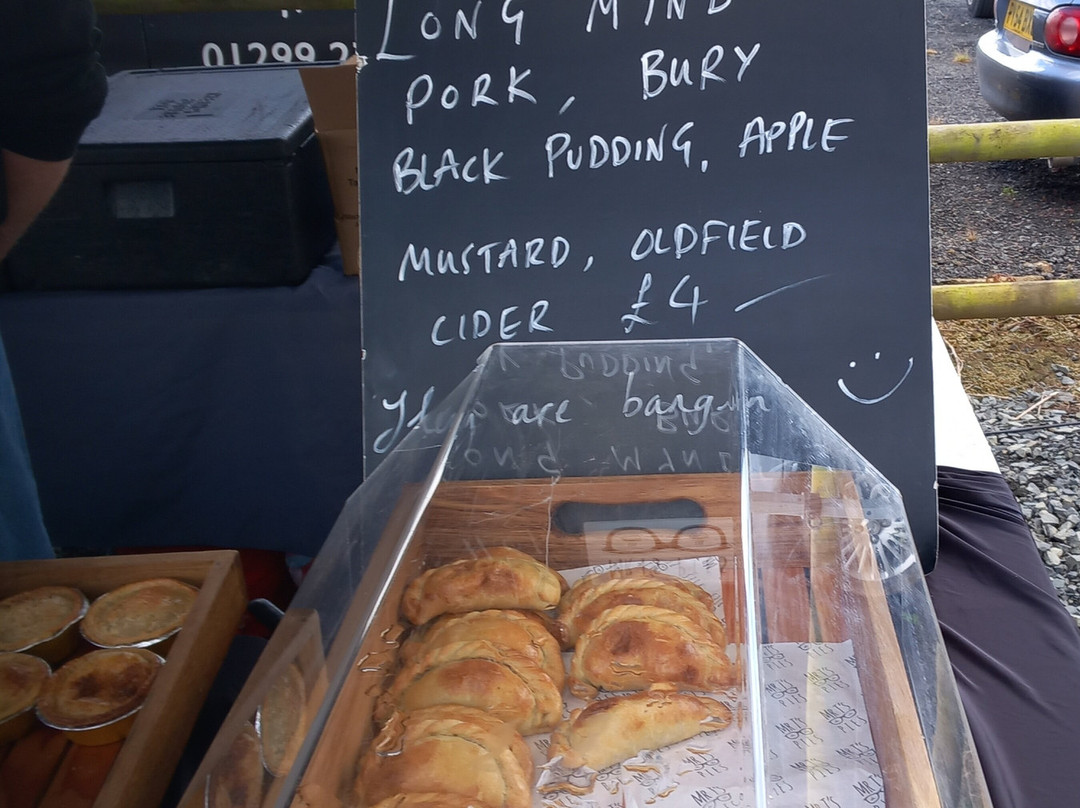 LONG MYND
PORK, BURY
BLACK PUDDING, APPLE
MUSTARD, OLDFIELD
CIDER £4
They are bangin
01299 2
MR T'S PIES